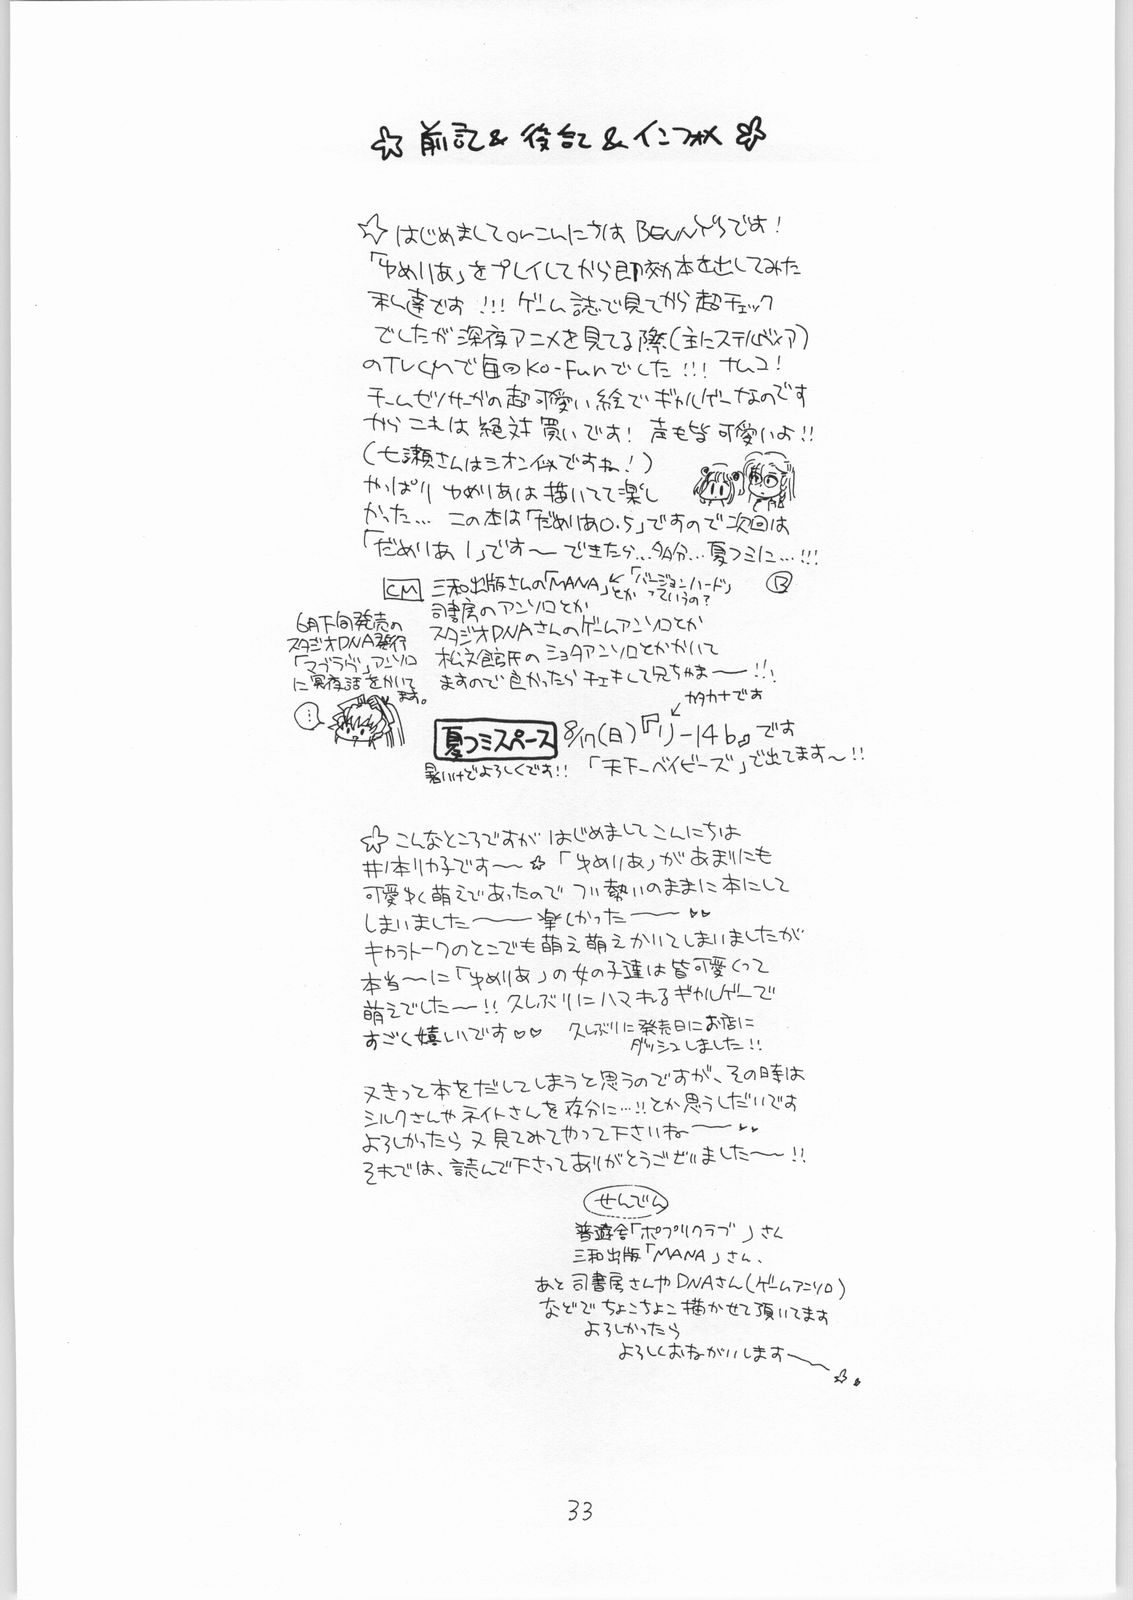 ☆ 前記 & 後記 & インフォメ ☆
☆ はじめまして or こんにちは BENNY'Sです!
「ゆめりあ」をプレイしてから即効本を出してみた
私達です!!! ゲーム誌で見てから超チェック
でしたが深夜アニメを見てる際(主にステルヴィア)
のTVCMで毎回Ko-Funでした!!! ナムコ!
チームゼノサーガの超可愛い絵でギャルゲーなのです
からこれは絶対買いです! 声も皆可愛いよ!!
(七瀬さんはシオン似ですね!)
やっぱりゆめりあは描いてて楽し
かった… この本は「だめりあ0.5」ですので次回は
「だめりあ1」です〜 できたら…多分…夏コミに…!!!
CM 三和出版さんの「MANA」← 「バージョンハード」
とかっていうの? B
司書房のアンソロとか
スタジオDNAさんのゲームアンソロとか
松文館氏のショタアンソロとかかいて
ますので良かったらチェキして兄ちゃま〜!!!
6月下旬発売の
スタジオDNA発行
「マブラヴ」アンソロ
に冥夜話をかいて
ます。
…
カタカナです
夏コミスペース 8/17(日)『リ-14b』です
暑いけどよろしくです!! 「天下一ベイビーズ」で出てます〜!!
☆ こんなところですが はじめまして こんにちは
井ノ本リカ子です〜☆ 「ゆめりあ」があまりにも
可愛ゆく萌えであったので つい勢いのままに本にして
しまいました〜 楽しかった〜 ♥♥
キャラトークのとこでも萌え萌えかいてしまいましたが
本当〜に「ゆめりあ」の女の子達は皆可愛くって
萌えでした〜!! 久しぶりにハマれるギャルゲーで
すごく嬉しいです♡♡ 久しぶりに発売日にお店に
ダッシュしました!!
又きって本をだしてしまうと思うのですが、その時は
シルクさんやネイトさんを存分に…!!とか思うしだいです
よろしかったら又見てみてやって下さいね〜 ♥♥
それでは、読んで下さってありがとうございました〜!!
せんでん
普遊舎「ポプリクラブ」さん
三和出版「MANA」さん、
あと司書房さんやDNAさん(ゲームアンソロ)
などでちょこちょこ描かせて頂いてます
よろしかったら
よろしくおねがいします〜☆.
33